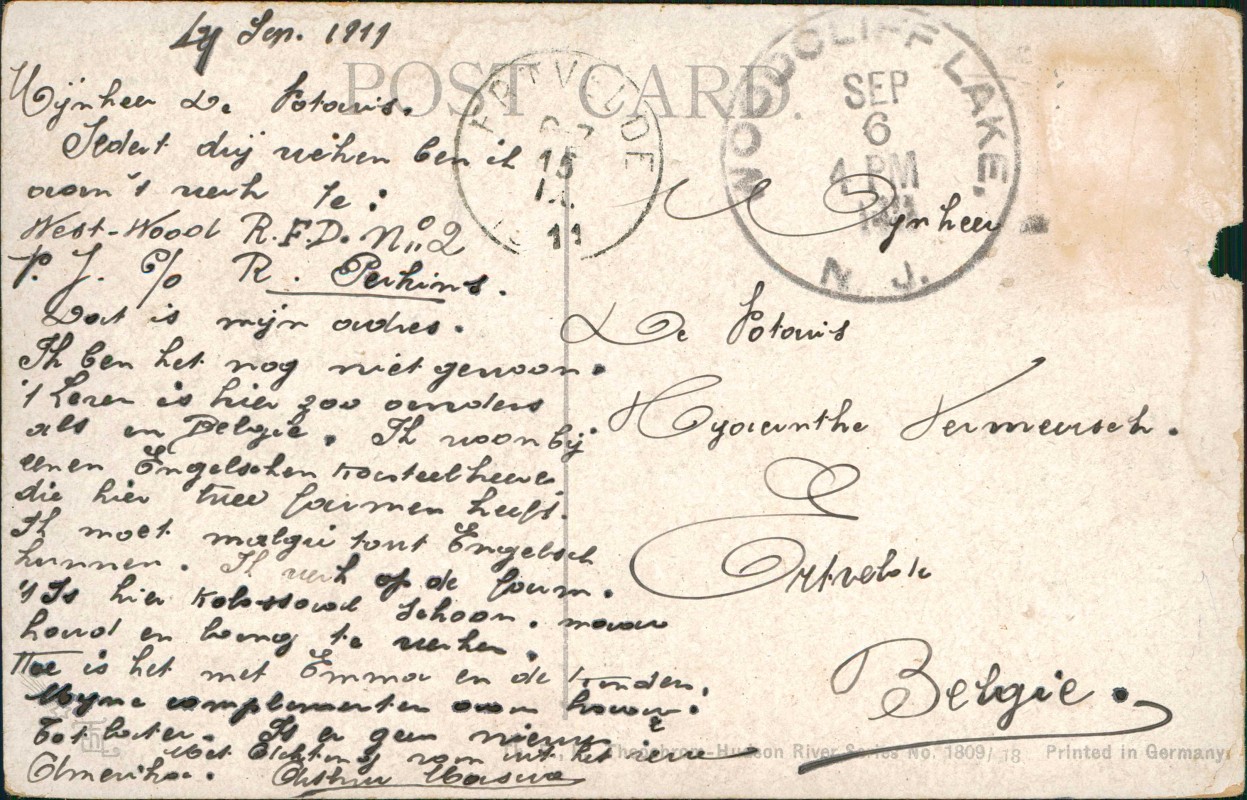 4 Sep. 1911
POST CARD.
Mynheer De Potavis.
Sedert drij weken ben ik
aan't werk te:
West-Wood R.F.D. No. 2
P. J. c/o R. Perkins.
Dat is mijn adres.
Ik ben het nog niet gewoon.
't Leven is hier zoo anders
als in België. Ik woon bij
eenen Engelschen Kasteelheere
die hier twee farmen heeft.
Ik moet malgré tout Engelsch
kunnen. Ik werk op de farm.
't Is hier kolossaal schoon. maar
hard en lang te werken.
Hoe is het met Emma en de kinders.
Myne complementen aan haar.
Tot later. Is er geen nieuws
Met Achting van uit het verre
Amerika. Arthur
ERTVELDE
15
11
WOODCLIFF LAKE,
SEP
6
4 PM
N. J.
Mynheer
De Potavis
Hyacinthe Vermeersch.
Ertvelde
België.
Theochrom-Hudson River Series No. 1809/13 Printed in Germany.